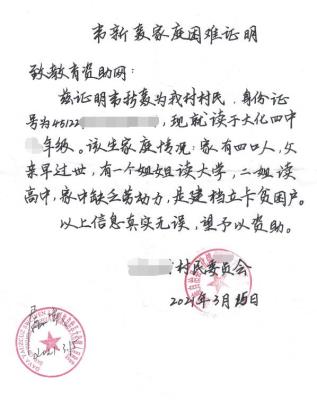 韦新葵家庭困难证明
致教育资助网：
兹证明韦新葵为我村村民，身份证
号为45122，现就读于大化四中
年级。该生家庭情况：家有四口人，父
亲早过世，有一个姐姐读大学，二姐读
高中，家中缺乏劳动力，是建档立卡贫困户。
以上信息真实无误，望予以资助。
村民委员会
2021年3月15日